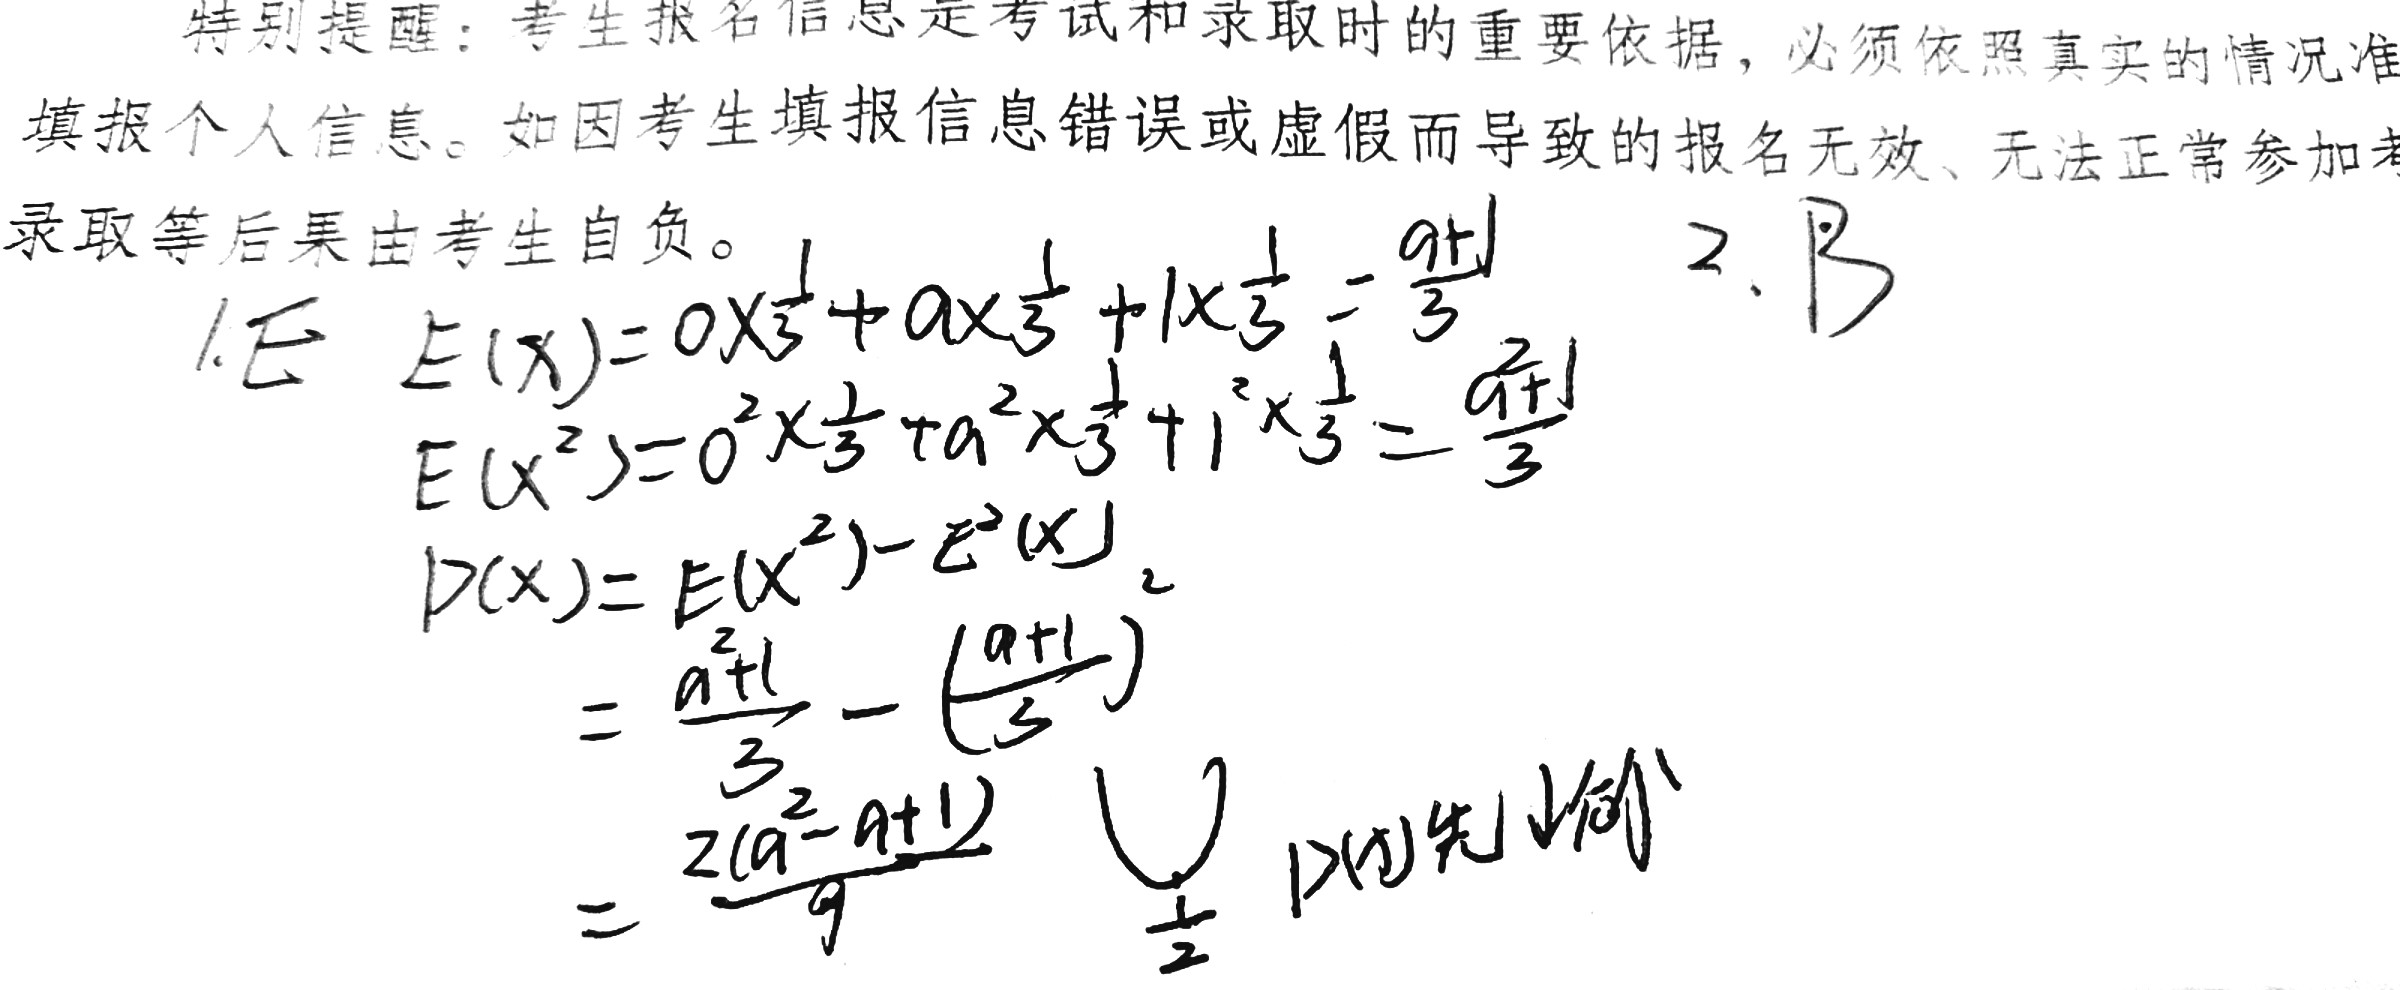 特别提醒：考生报名信息是考试和录取时的重要依据，必须依照真实的情况准
填报个人信息。如因考生填报信息错误或虚假而导致的报名无效、无法正常参加考
录取等后果由考生自负。
1. E E(X)=0×1/3+a×1/3+1×1/3=(a+1)/3
E(X²)=0²×1/3+a²×1/3+1²×1/3=(a²+1)/3
D(X)=E(X²)-E²(X)
=(a²+1)/3-((a+1)/3)²
=2(a²-a+1)/9
1/2
D(X)先
2. B